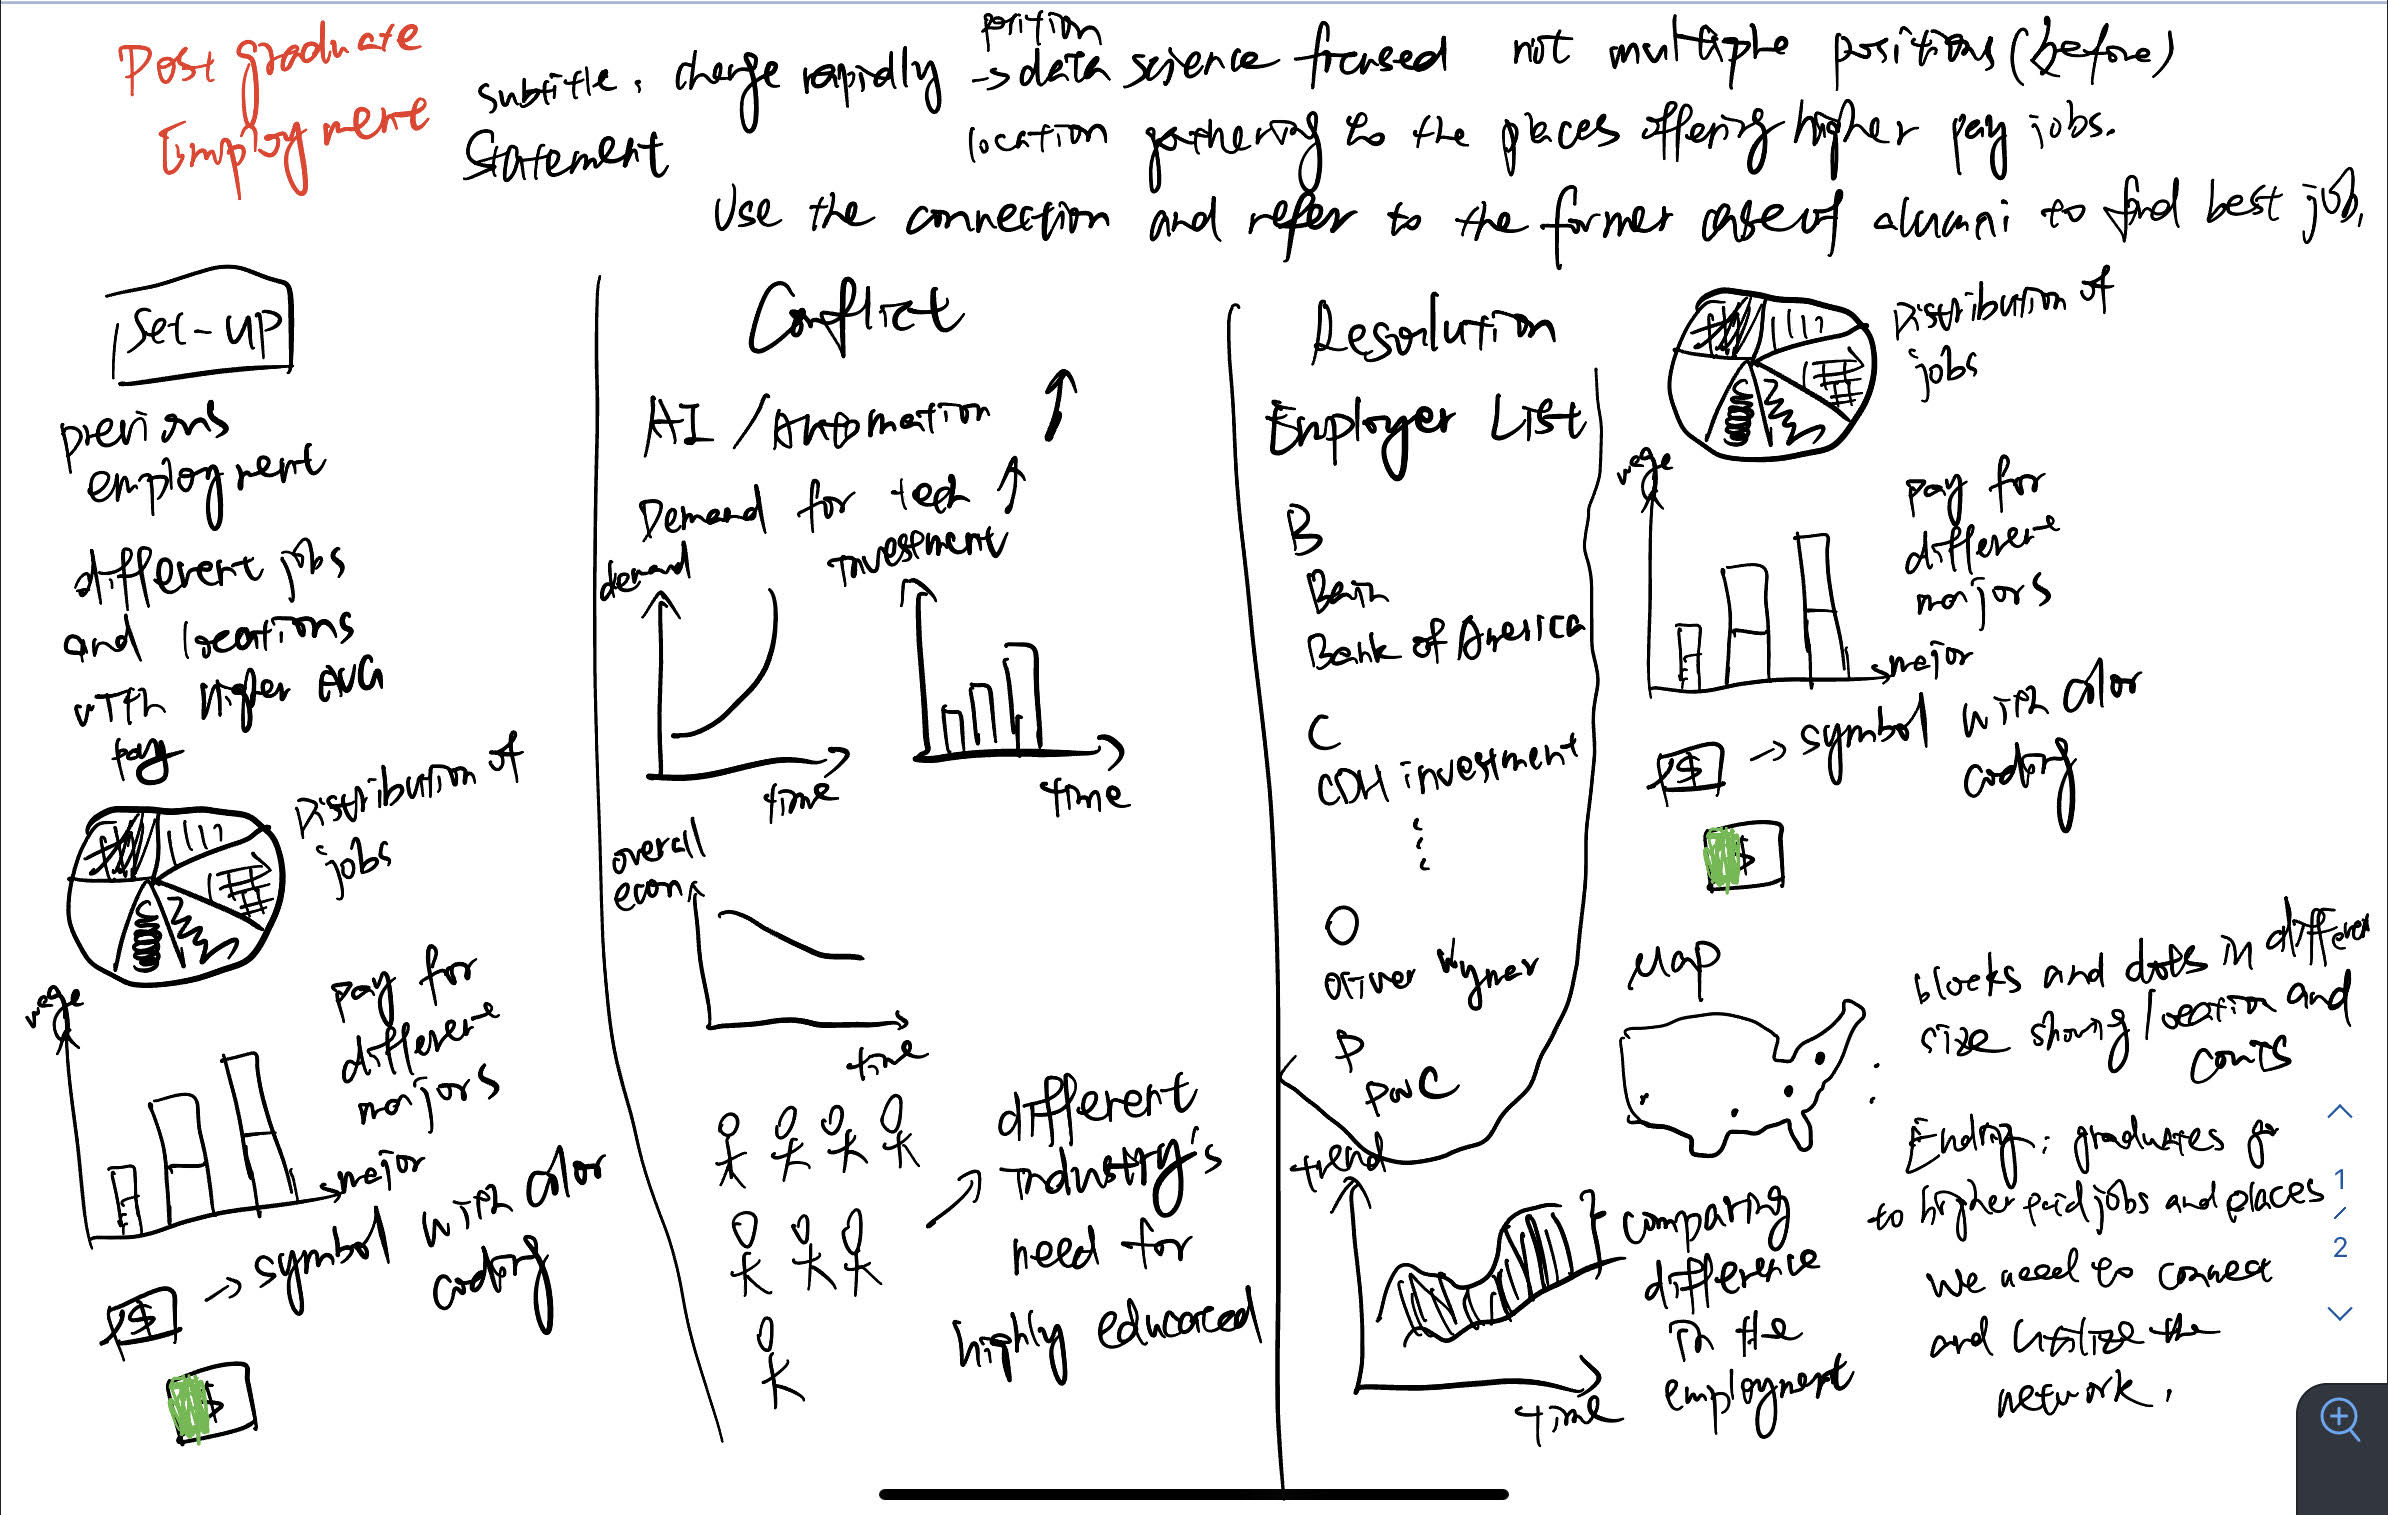 Post graduate
Employment
subtitle. change rapidly
position
→ data science focused not multiple positions (before)
Statement
location gathering to the places offering higher pay jobs.
Use the connection and refer to the former case of alumni to find best job.
Set-up
previous
employment
different jobs
and locations
with Higher AVG
pay
Distribution of
jobs
wage
pay for
different
majors
major
$ → symbol with color
coding
$
Conflict
AI / Automation ↑
Demand for tech ↑
demand
time
Investment
time
overall
econ
time
different
industry's
need for
highly educated
Resolution
Employer List
B
Bain
Bank of America
C
CDH investment
O
Oliver Wyner
P
PwC
trend
time
comparing
difference
in the
employment
Distribution of
jobs
wage
pay for
different
majors
major
$ → symbol with color
coding
$
Map
blocks and dots in different
size showing location and
counts
Ending: graduates go
to higher paid jobs and places
we need to connect
and utilize the
network.
1
/
2